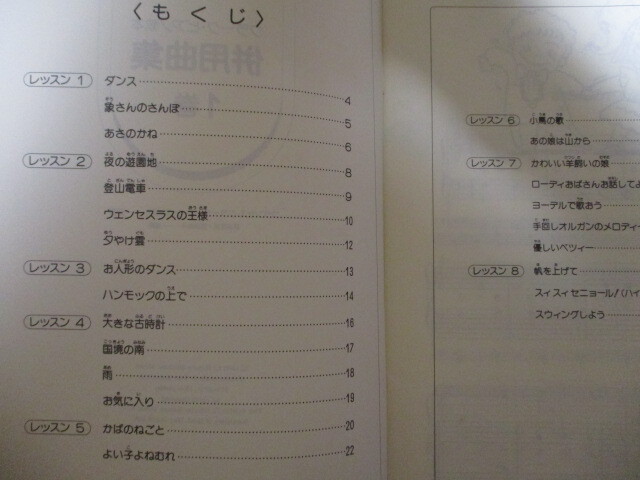 〈もくじ〉
レッスン 1 ダンス 4
象さんのさんぽ 5
あさのかね 6
レッスン 2 夜の遊園地 8
登山電車 9
ウェンセスラスの王様 10
夕やけ雲 12
レッスン 3 お人形のダンス 13
ハンモックの上で 14
レッスン 4 大きな古時計 16
国境の南 17
雨 18
お気に入り 19
レッスン 5 かばのねごと 20
よい子よねむれ 22
レッスン 6 小鳥の歌
あの娘は山から
レッスン 7 かわいい羊飼いの娘
ローディおばさんお話してよ
ヨーデルで歌おう
手回しオルガンのメロディー
優しいベツィー
レッスン 8 帆を上げて
スィスィセニョール!(ハイ
スウィングしよう
併用曲集